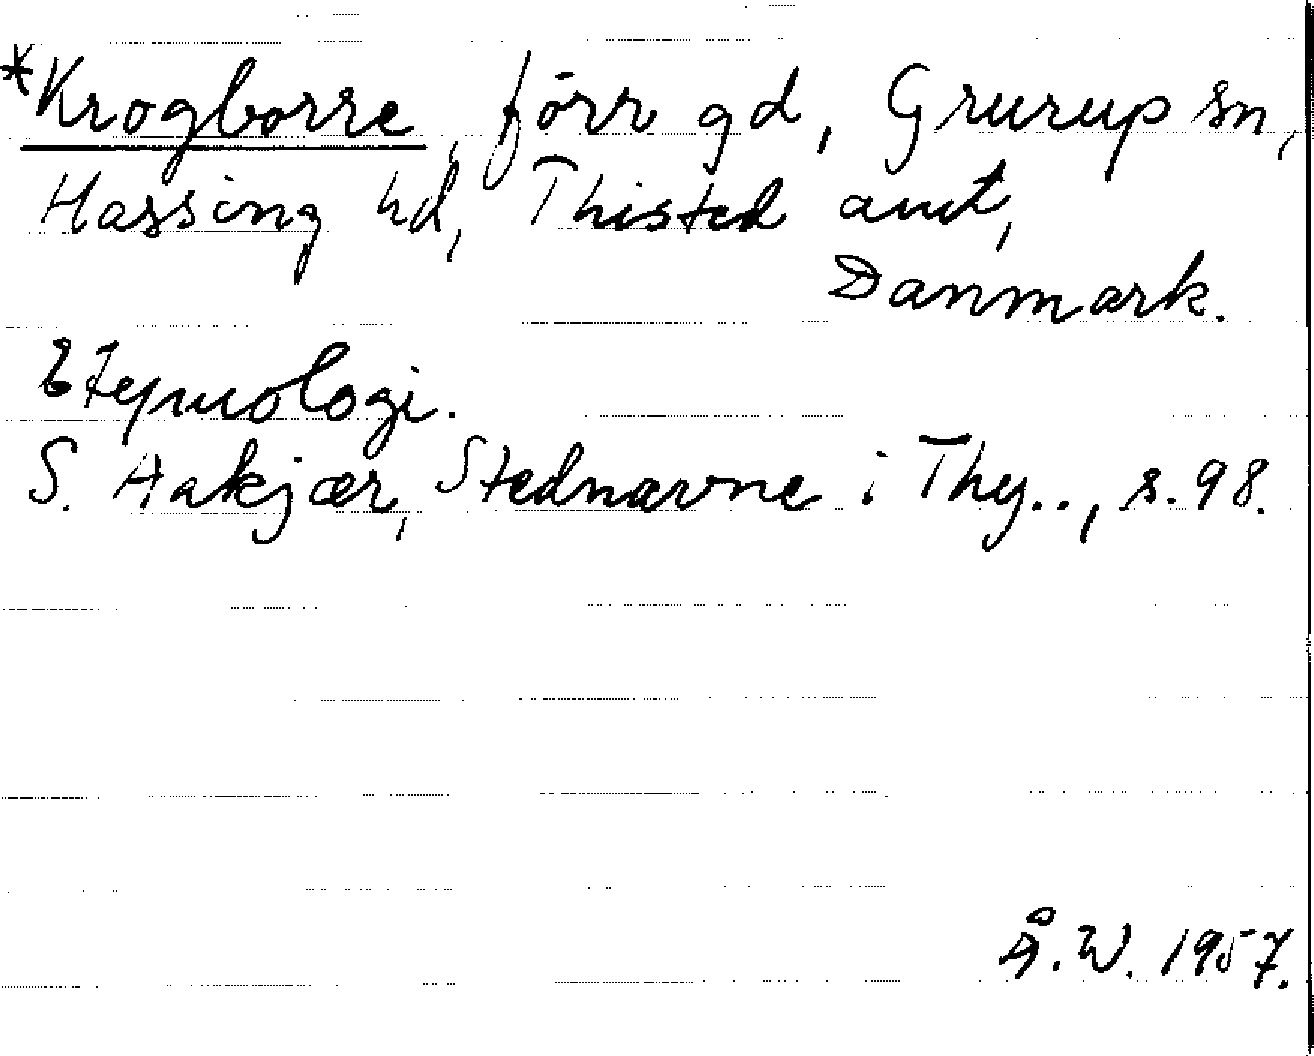 *Krogborre, förr gd, Grurup sn,
Hassing hd, Thisted amt,
Danmark.
Etymologi.
S. Aakjær, Stednavne i Thy.., s. 98.
Å. W. 1957.